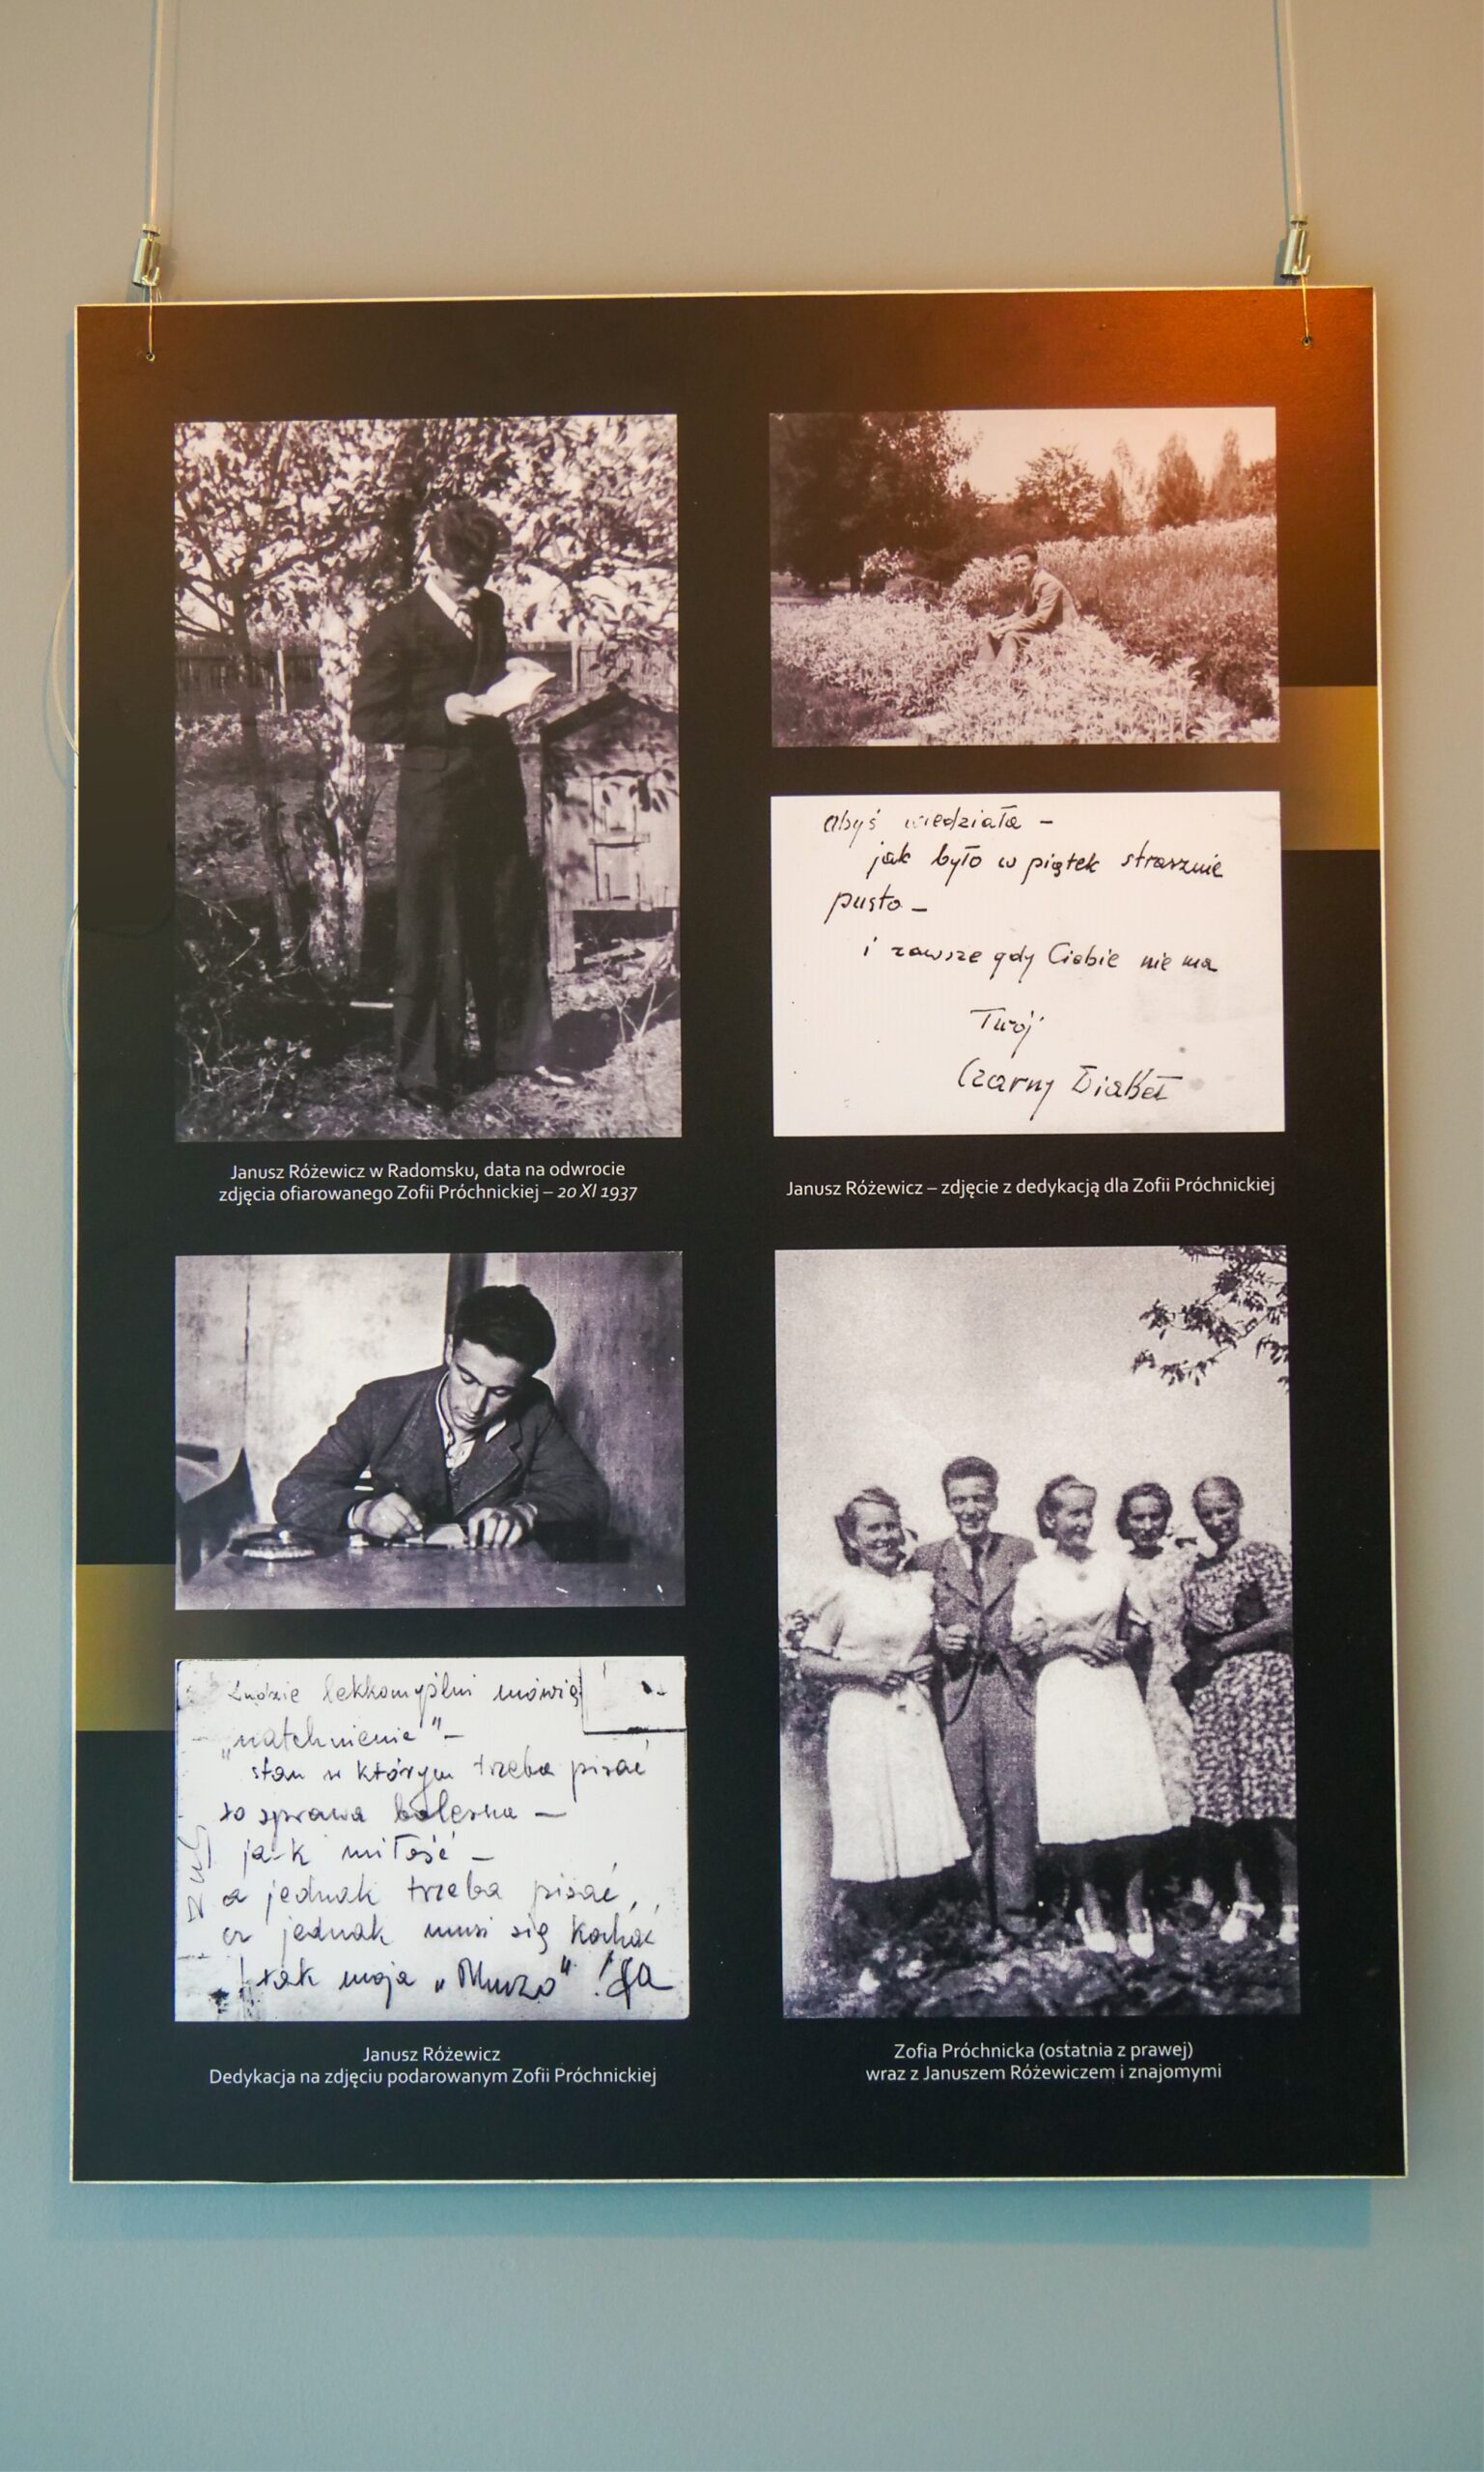 abyś wiedziała –
jak było w piątek strasznie
pusto –
i zawsze gdy Ciebie nie ma
Twój
Czarny Diabeł
Janusz Różewicz w Radomsku, data na odwrocie
zdjęcia ofiarowanego Zofii Próchnickiej – 20 XI 1937
Janusz Różewicz – zdjęcie z dedykacją dla Zofii Próchnickiej
Ludzie lekkomyślni mówią
"natchnienie" –
stan w którym trzeba pisać
to sprawa bolesna –
jak miłość –
a jednak trzeba pisać,
a jednak musi się kochać
tak moja „Muzo" !
Janusz Różewicz
Dedykacja na zdjęciu podarowanym Zofii Próchnickiej
Zofia Próchnicka (ostatnia z prawej)
wraz z Januszem Różewiczem i znajomymi